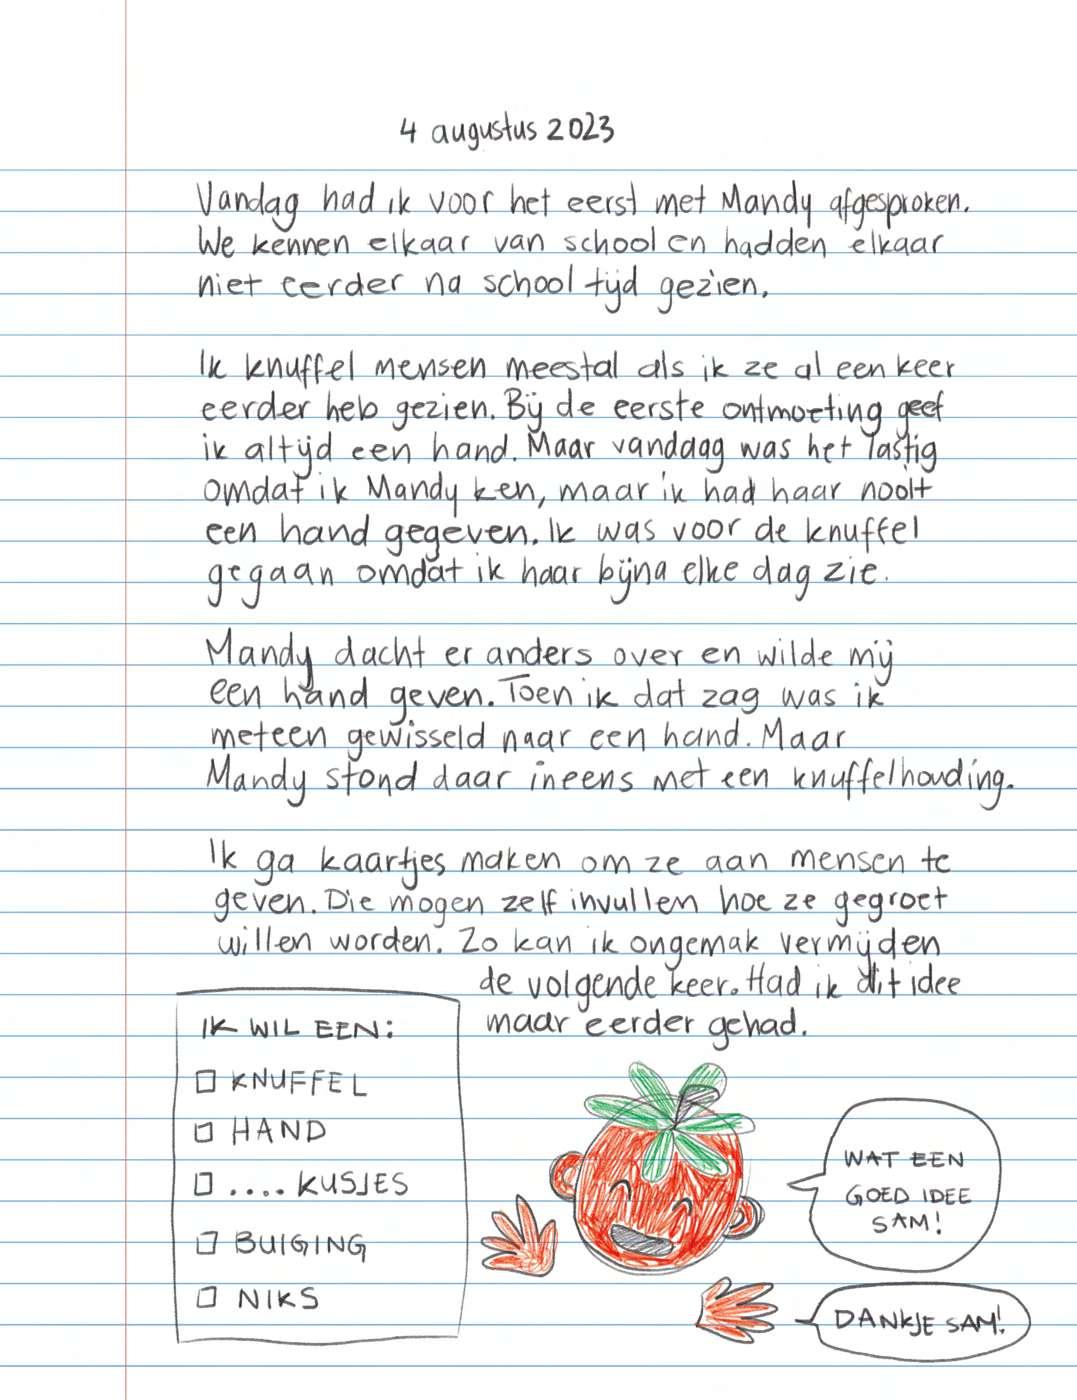 4 augustus 2023
Vandag had ik voor het eerst met Mandy afgesproken.
We kennen elkaar van school en hadden elkaar
niet eerder na school tijd gezien.
Ik knuffel mensen meestal als ik ze al een keer
eerder heb gezien. Bij de eerste ontmoeting geef
ik altijd een hand. Maar vandaag was het lastig
omdat ik Mandy ken, maar ik had haar nooit
een hand gegeven. Ik was voor de knuffel
gegaan omdat ik haar bijna elke dag zie.
Mandy dacht er anders over en wilde mij
een hand geven. Toen ik dat zag was ik
meteen gewisseld naar een hand. Maar
Mandy stond daar ineens met een knuffelhouding.
Ik ga kaartjes maken om ze aan mensen te
geven. Die mogen zelf invullen hoe ze gegroet
willen worden. Zo kan ik ongemak vermijden
de volgende keer. Had ik dit idee
maar eerder gehad.
IK WIL EEN:
KNUFFEL
HAND
.... KUSJES
BUIGING
NIKS
WAT EEN
GOED IDEE
SAM!
DANKJE SAM!